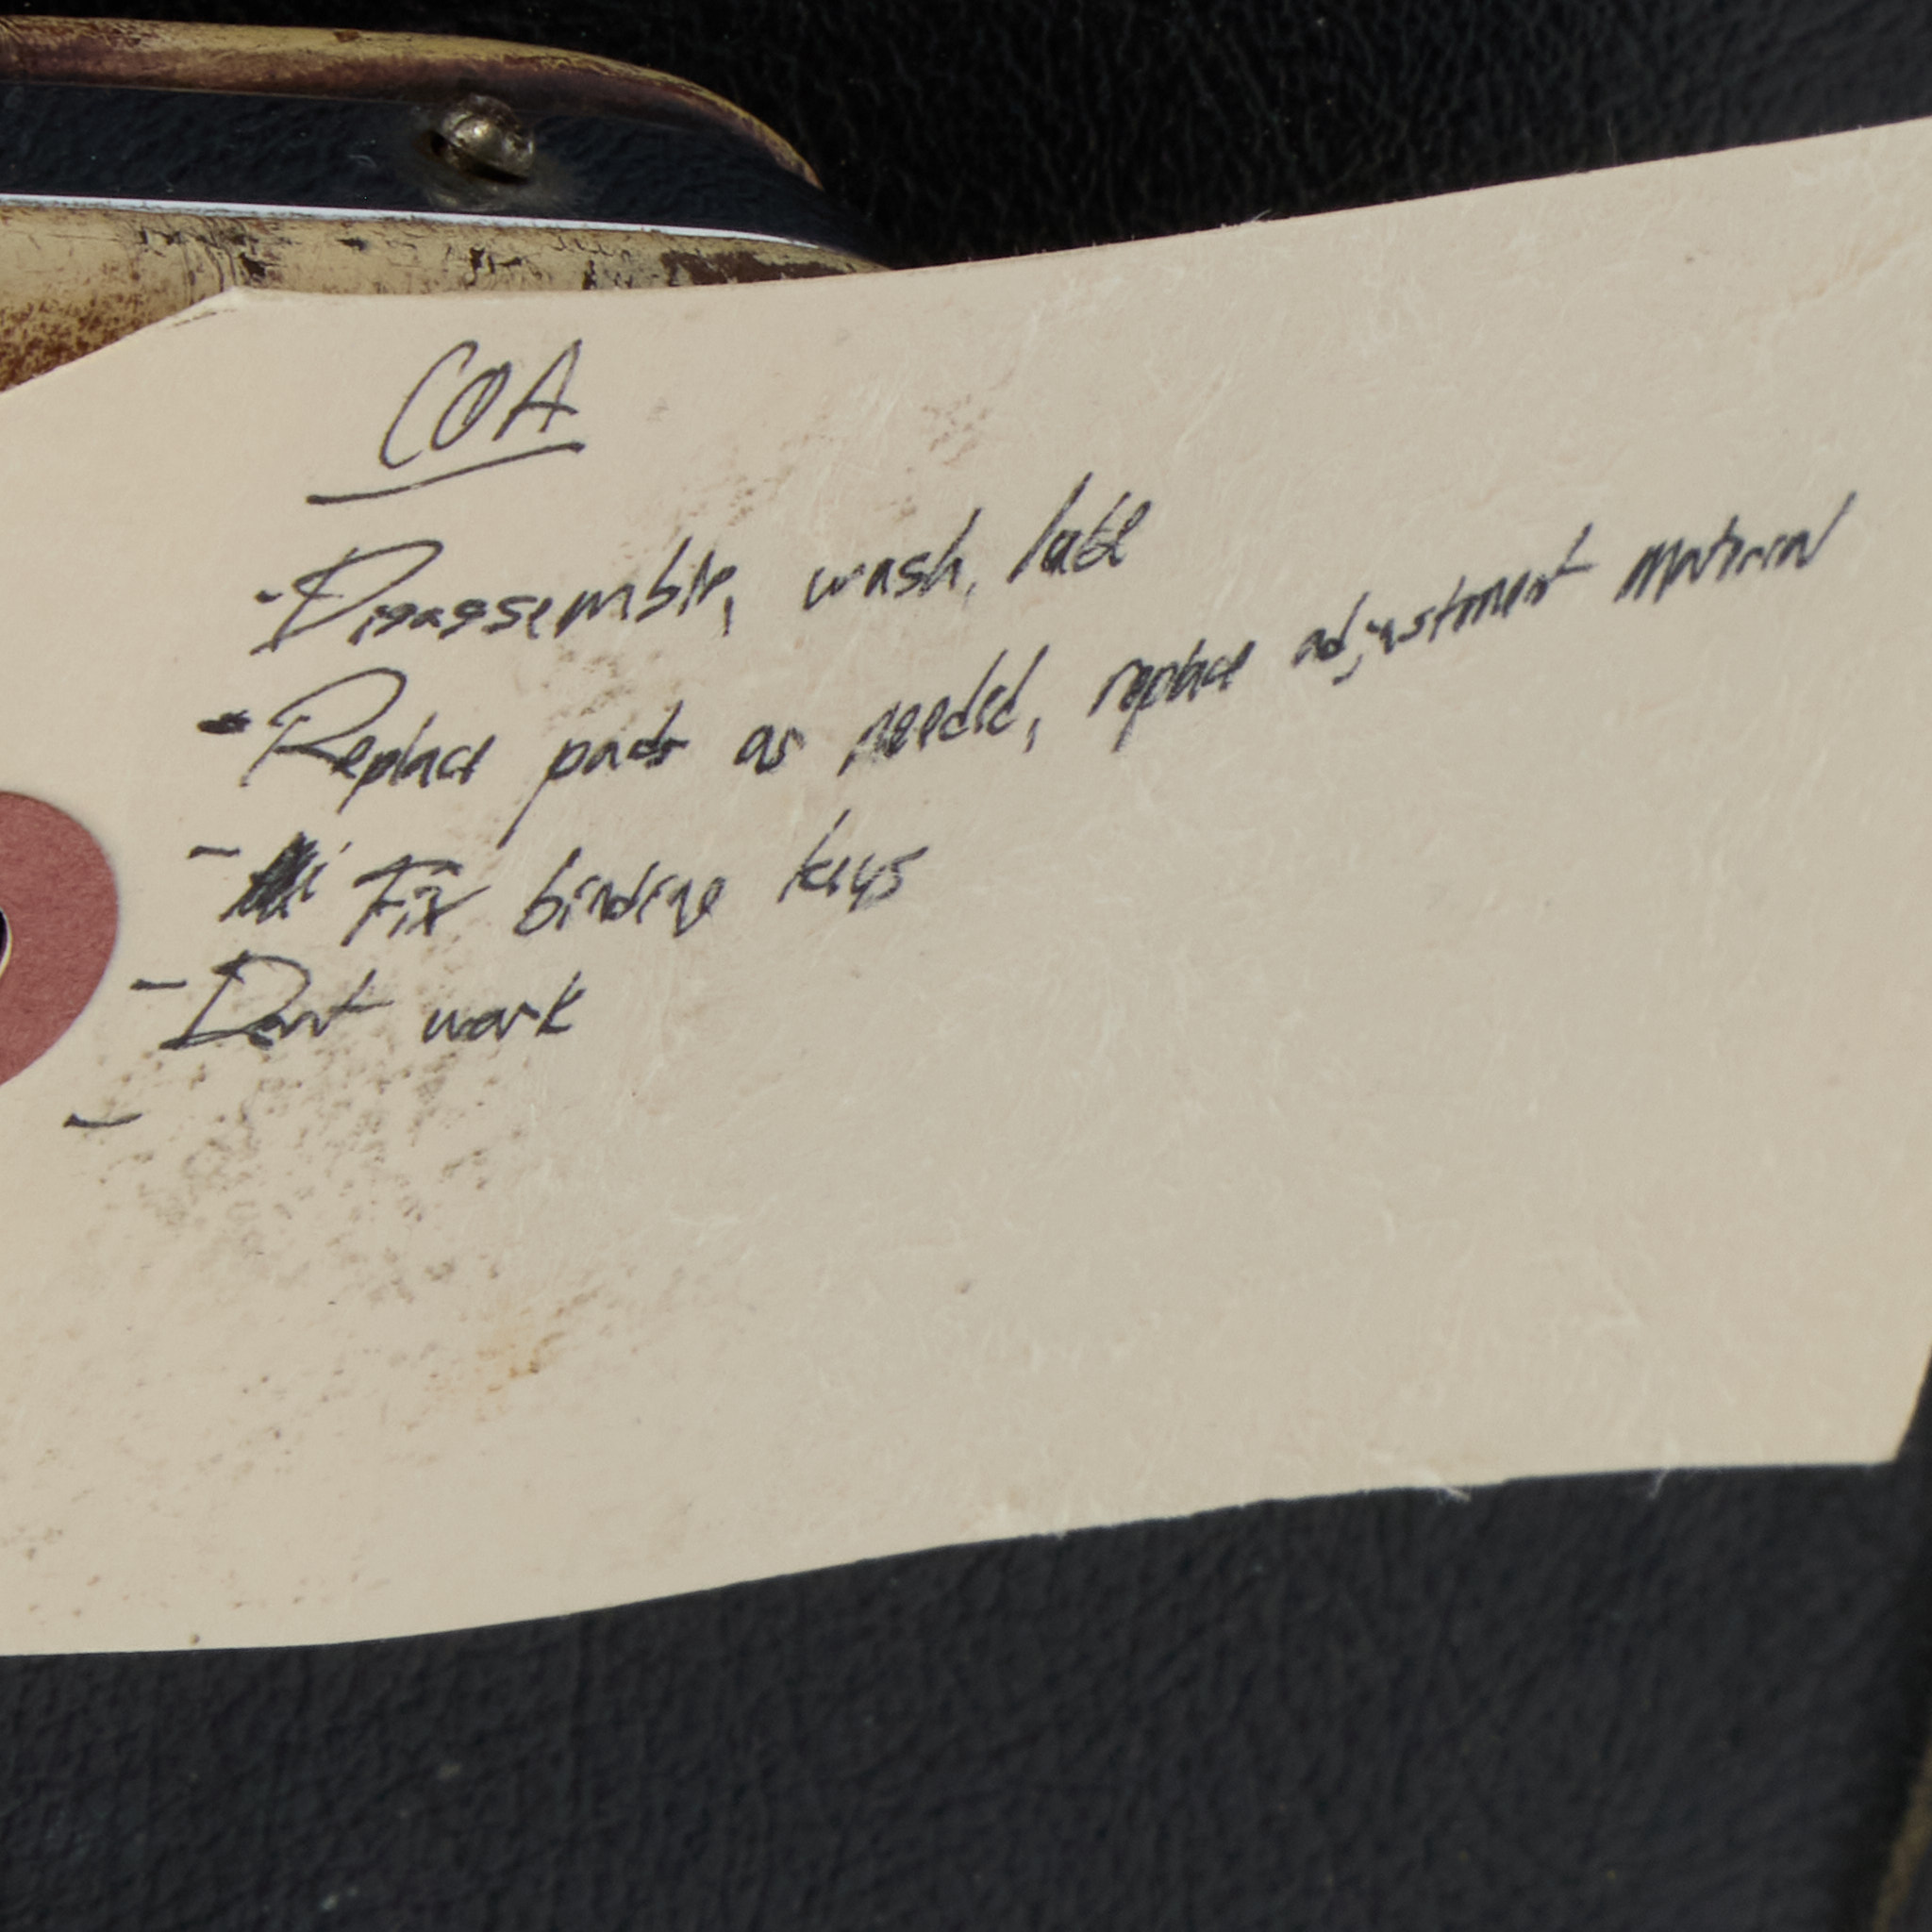 COA
- Disassemble, wash, lube
- Replace pads as needed, replace adjustment material
- Fix binding keys
- Dent work
-